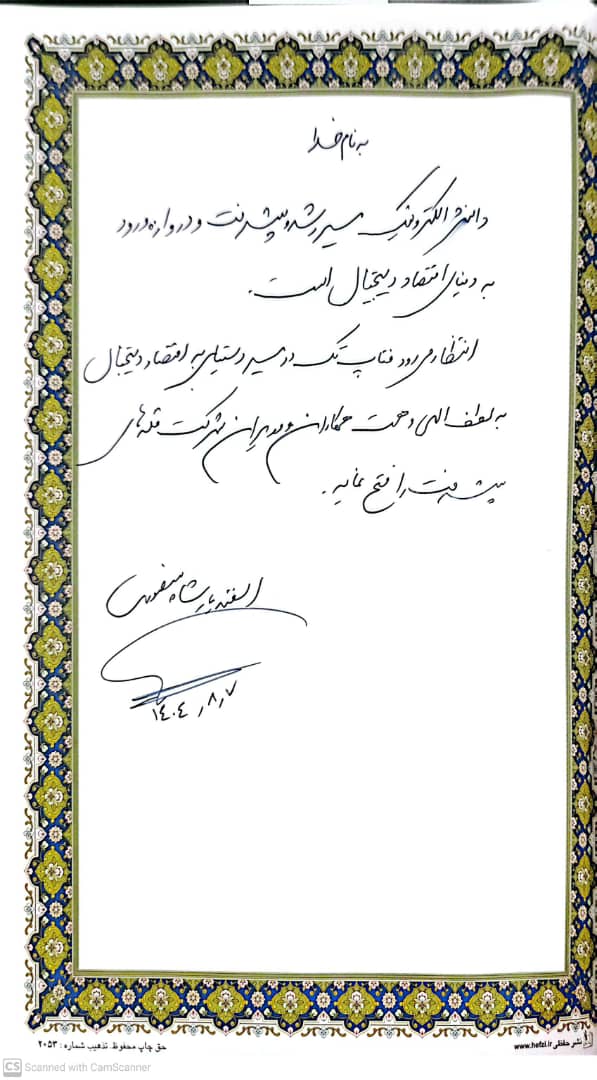 به نام خدا
دانش الکترونیک مسیر رشد و پیشرفت و دروازه ورود
به دنیای اقتصاد دیجیتال است.
انتظار می رود فناپ تک در مسیر دستیابی به اقتصاد دیجیتال
به لطف الهی و همت همکاران و مدیران شرکت قله های
پیشرفت را فتح نماید.
اسفندیار
۱۴۰۴٫۸٫۷
حق چاپ محفوظ. تذهیب شماره : ۲۰۵۳
نشر حفظی www.hefzi.ir
CS Scanned with CamScanner